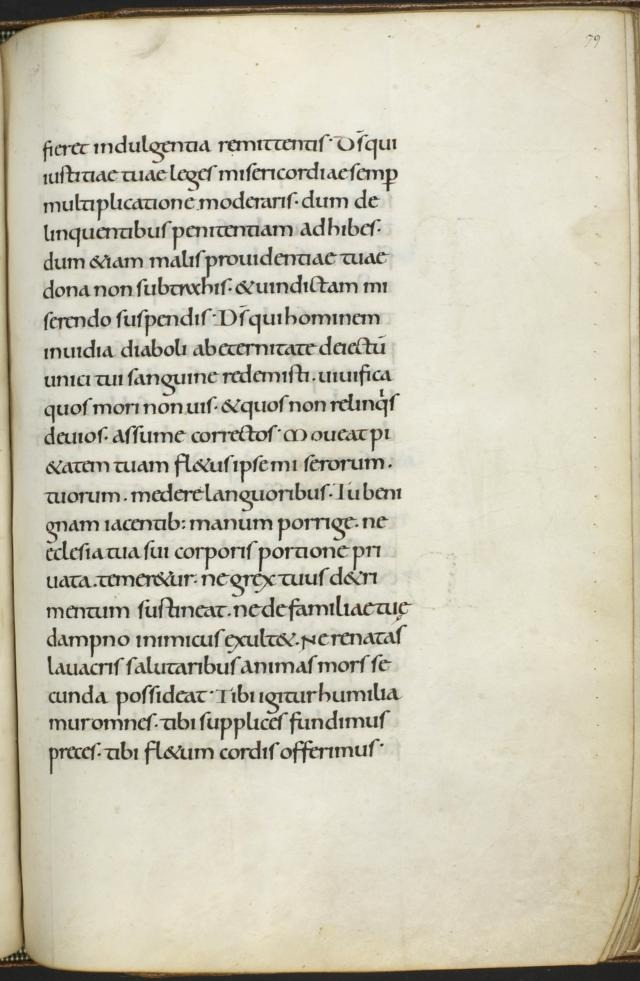 79
fieret indulgentia remittentis· D̄s qui
iustitiae tuae leges misericordiae semꝑ
multiplicatione moderaris· dum de
linquentibus penitentiam adhibes·
dum &iam malis prouidentiae tuae
dona non subtrahis· & uindictam mi
serendo suspendis· D̄s qui hominem
inuidia diaboli ab eternitate deiectū
unici tui sanguine redemisti· uiuifica
quos mori non uis· & quos non relinq̇s
deuios· assume correctos· Moueat pi
&atem tuam fl&us ipse mi serorum·
tuorum· medere languoribus· Tu beni
gnam iacentib: manum porrige· ne
eclesia tua sui corporis portione pri
uata· temer&ur· ne grex tuus d&ri
mentum sustineat· ne de familiae tuę
dampno inimicus exult&· Ne renatas
lauacris salutaribus animas mors se
cunda possideat· Tibi igitur humilia
mur omnes· tibi supplices fundimus
preces· tibi fl&um cordis offerimus·